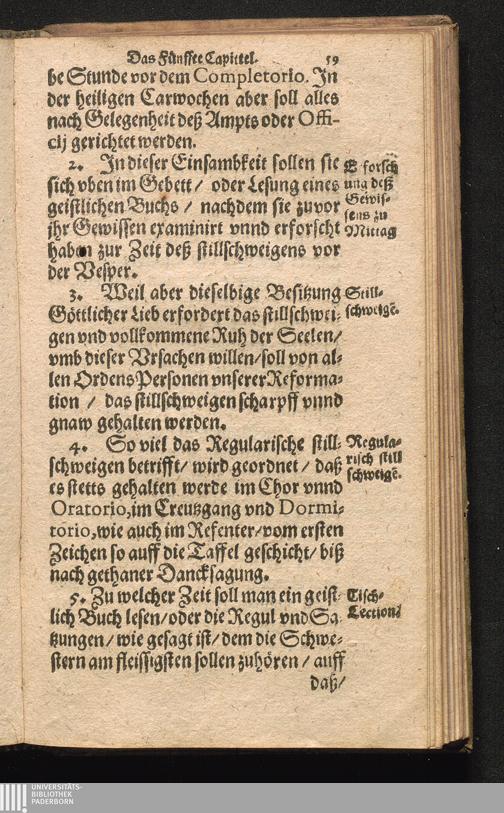 Das Fünffte Capittel. 59
be Stunde vor dem Completorio. In
der heiligen Carwochen aber soll alles
nach Gelegenheit deß Ampts oder Offi-
cij gerichtet werden.
2. In dieser Einsambkeit sollen sie
sich vben im Gebett / oder Lesung eines
geistlichen Buchs / nachdem sie zuvor
jhr Gewissen examinirt vnnd erforscht
haben zur Zeit deß stillschweigens vor
der Vesper.
Erforsch
ung deß
Gewis-
sens zu
Mittag
3. Weil aber dieselbige Besitzung
Göttlicher Lieb erfordert das stillschwei-
gen vnd vollkommene Ruh der Seelen/
vmb dieser Vrsachen willen/soll von al-
len OrdensPersonen vnserer Reforma-
tion / das stillschweigen scharpff vnnd
gnaw gehalten werden.
Still-
schweigē.
4. So viel das Regularische still-
schweigen betrifft/ wird geordnet / daß
es stetts gehalten werde im Chor vnnd
Oratorio, im Creutzgang vnd Dormi-
torio, wie auch im Refenter/vom ersten
Zeichen so auff die Taffel geschicht/ biß
nach gethaner Dancksagung.
Regula-
risch still
schweigē.
5. Zu welcher Zeit soll man ein geist-
lich Buch lesen/oder die Regul vnd Sa-
tzungen / wie gesagt ist/ dem die Schwe-
stern am fleissigsten sollen zuhören / auff
Tisch-
Lection.
daß/
UNIVERSITÄTS-
BIBLIOTHEK
PADERBORN